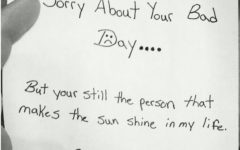 Sorry About Your Bad
Day....
But your still the person that
makes the sun shine in my life.